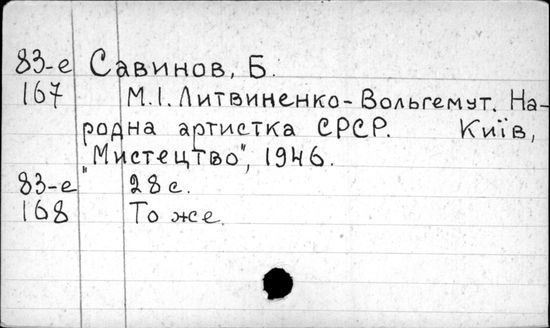 83-е Савинов, Б.
167 М.І. Литвиненко-Вольгемут. На-
родна артистка СРСР. Київ,
"Мистецтво", 1946.
83-е 28 с.
168 То же.